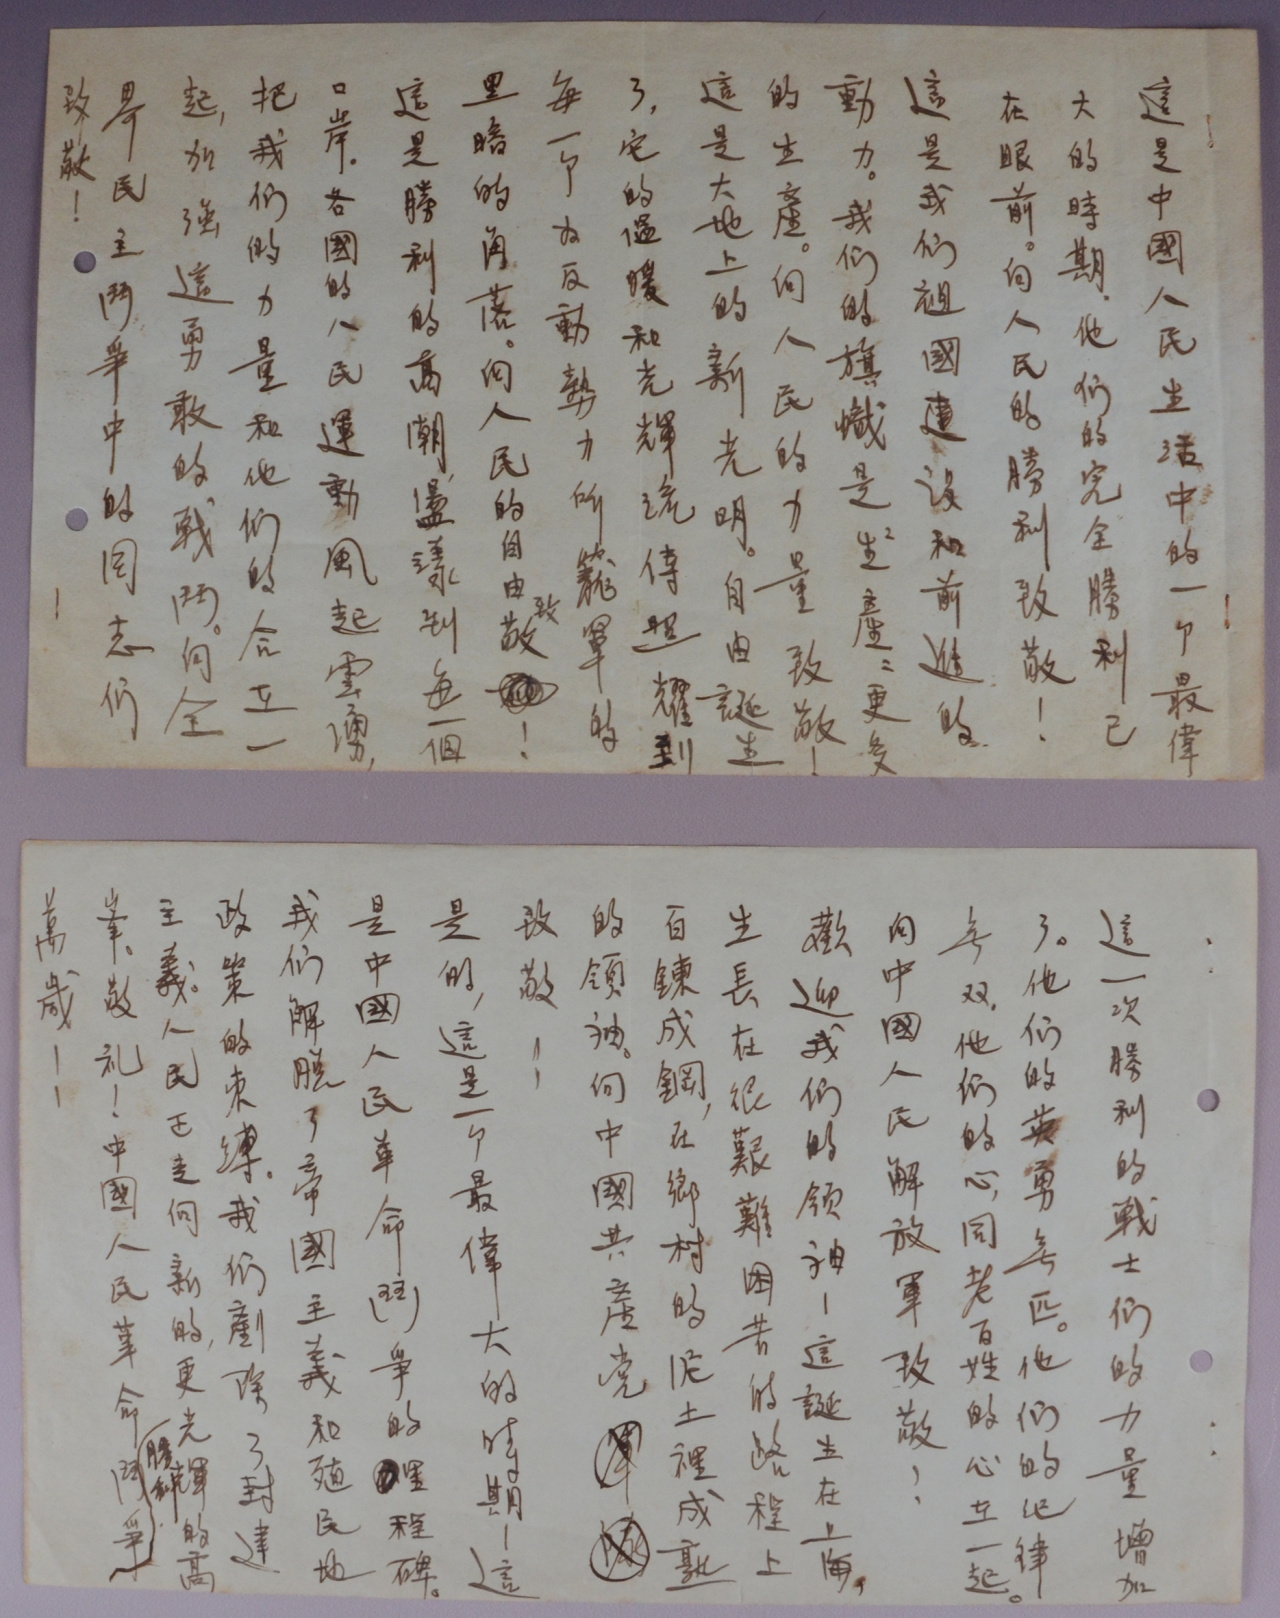 這是中國人民生活中的一个最偉
大的時期。他们的完全勝利已
在眼前。向人民的勝利致敬！
這是我们祖國建設和前進的
動力。我们的旗幟是“生產”更多
的生產。向人民的力量致敬！
這是大地上的新光明。自由誕生
了，它的溫暖和光輝流傳照耀到
每一个为反動勢力所籠罩的
黑暗的角落。向人民的自由致敬！
這是勝利的高潮，盪漾到每一個
口岸。各國的人民運動風起雲湧，
把我们的力量和他们的合在一
起，加強這勇敢的戰鬥。向全
界民主鬥爭中的同志们
致敬！
這一次勝利的戰士们的力量增加
了。他们的英勇无匹。他们的纪律
无双。他们的心，同老百姓的心在一起。
向中國人民解放軍致敬！
歡迎我们的領袖－這誕生在上海，
生長在很艱難困苦的路程上
百鍊成鋼，在鄉村的泥土裡成熟
的領袖。向中國共產党
致敬！！
是的，這是一个最偉大的時期－這
是中國人民革命鬥爭的里程碑。
我们解脫了帝國主義和殖民地
政策的束縛。我们剷除了封建
主義。人民正走向新的，更光輝的高
峯。敬礼！中國人民革命鬥爭勝利
萬歲！！